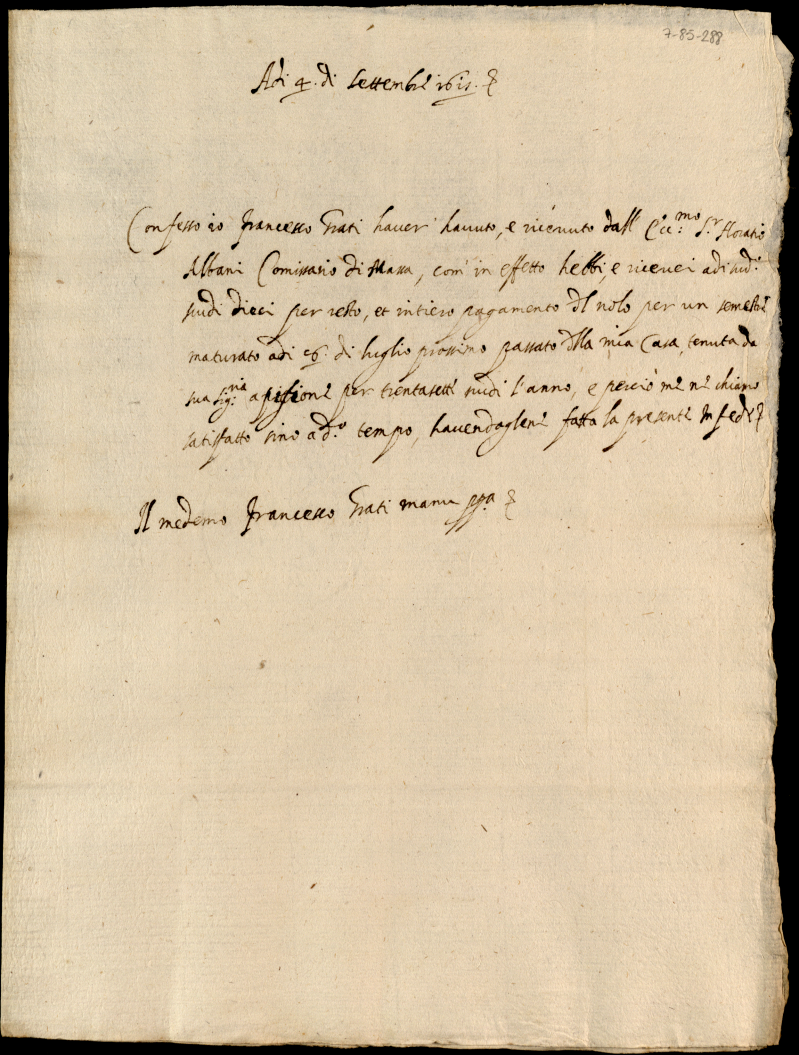 7-85-288
Adi 4. di Settembre 1621.
Confesso io Francesco Grati haver havuto, e ricevuto dall' Ecc.mo S.r Horatio
Albani Comissario di Massa, com' in effetto hebbi, e ricevei adi sud.o
scudi dieci per resto, et intiero pagamento del nolo per un semestre
maturato adi 16. di luglio prossimo passato della mia Casa, tenuta da
sua Sig.ria a pisione per trentasette scudi l'anno, e perciò me ne chiamo
satisfatto sino a d.o tempo, havendoglene fatta la presente in fede
Il medemo Francesco Grati manu pp.a